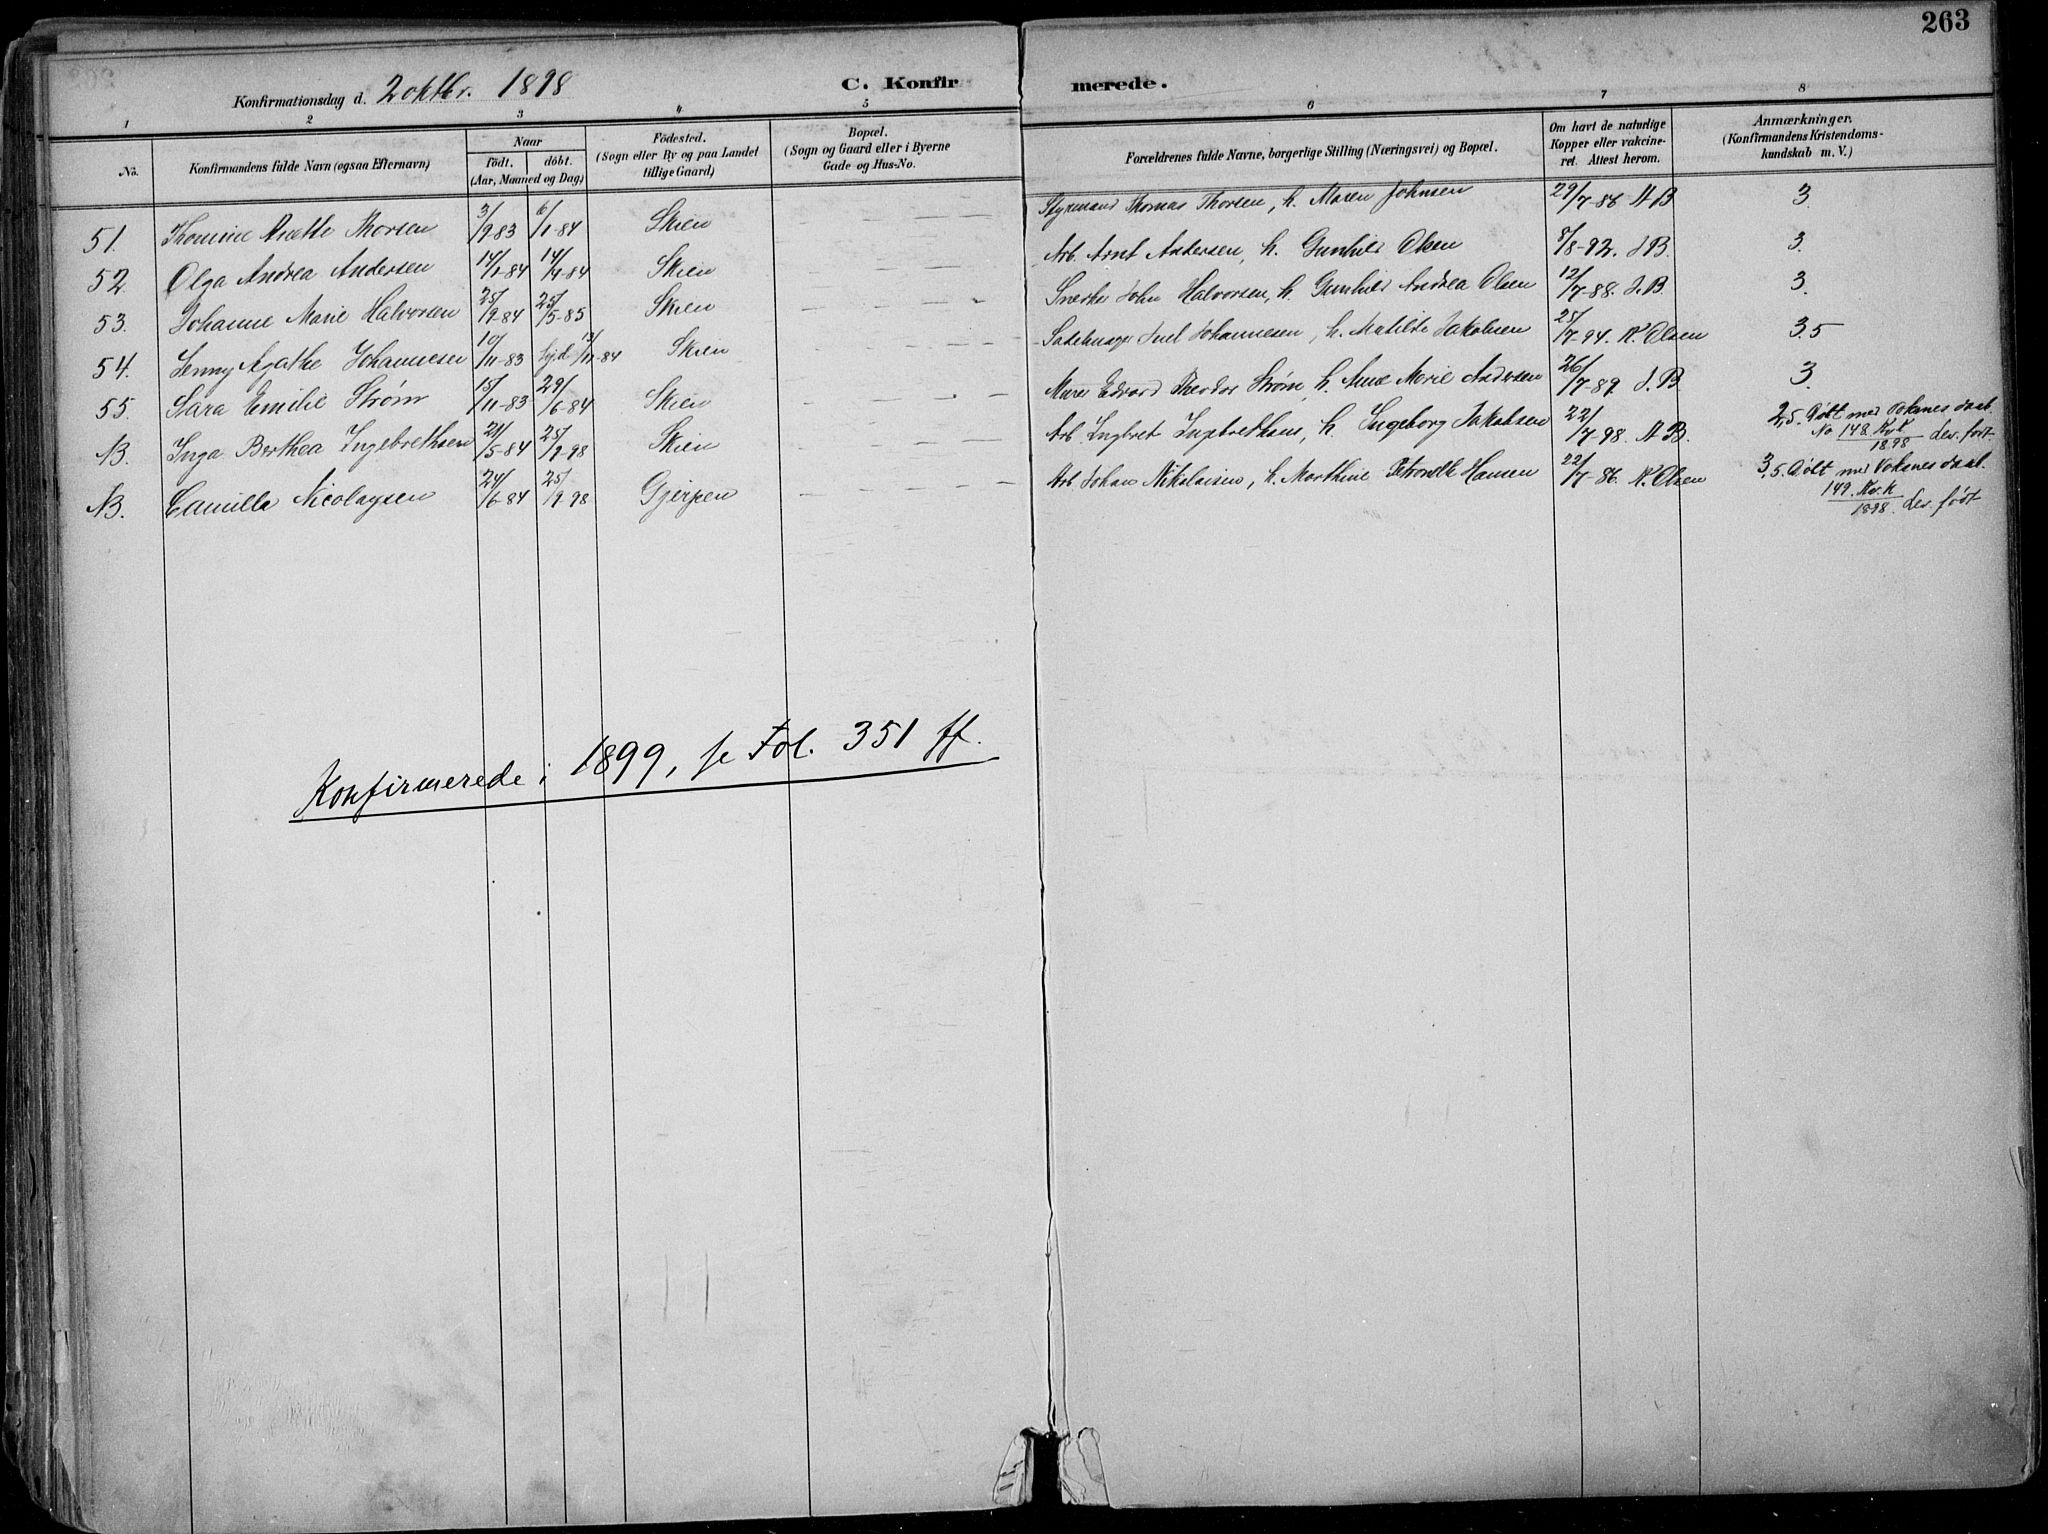 263
Konfirmationsdag d. 2 oktbr. 1898
C. Konfirmerede.
1 2 3 4 5 6 7 8
No.
Konfirmandens fulde Navn (ogsaa Efternavn)
Naar
födt. döbt.
(Aar, Maaned og Dag)
Födested.
(Sogn eller By og paa Landet
tillige Gaard)
Bopæl.
(Sogn og Gaard eller i Byerne
Gade og Hus-No.
Forældrenes fulde Navne, borgerlige Stilling (Næringsvei) og Bopæl.
Om havt de naturlige
Kopper eller vakcine-
ret. Attest herom.
Anmærkninger.
(Konfirmandens Kristendoms-
kundskab m. V.)
51. Thomine Anette Thorsen 3/9-83 6/1-84 Skien Styrmand Thomas Thorsen, h. Maren Johnsen 29/7-86 AB 3.
52. Olga Andrea Andersen 14/1-84 14/4-84 Skien Arb. Arnt Andersen, h. Gunhild Olsen 8/8-92. J.B. 3.
53. Johanne Marie Halvorsen 25/9-84 25/5-85 Skien Snedker John Halvorsen, h. Gunhild Andrea Olsen 12/7-88. J.B. 3.
54. Jenny Agathe Johannesen 10/11-83 hjd 13/11-84 Skien Juel Johannesen, h. Matilde Jakobsen 25/7-94. K. Olsen 3.5
55. Sara Emilie Strøm 15/11-83 29/6-84 Skien Murer Edvard Theodor Strøm, h. Anne Marie Andersen 26/7-89. J.B 3.
NB. Inga Berthea Ingebrethsen 21/5-84 25/9-98 Skien Arb. Ingbret Ingebrethsen, h. Ingeborg Jakobsen 22/7-98. AB. 2,5. Døbt med Voksnes daab.
No 148. Kv.k 1898 dev. født
NB. Camilla Nicolaysen 24/6-84 25/9-98 Gjerpen Arb. Johan Nikolaisen, h. Marthine Petronelle Hansen 22/7-86. K. Olsen 3,5. Døbt med Voksnes daab.
149. Kv.k 1898. dev. født
Konfirmerede i 1899, se Fol. 351 ff.